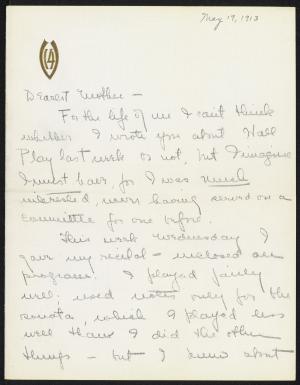 May 19, 1913
Dearest Mother —
For the life of me I can't think
whether I wrote you about Hall
Play last week or not, but I imagine
I must have, for I was much
interested, never having served on a
committee for one before.
This week Wednesday I
gave my recital — inclosed are
programs. I played fairly
well; used notes only for the
sonata, which I played less
well than I did the other
things — but I knew about